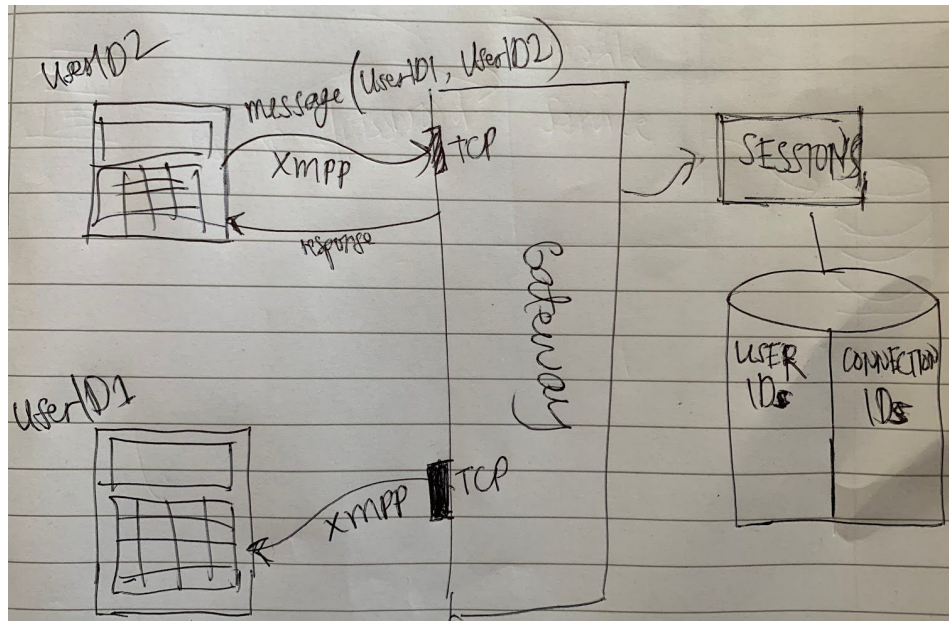 UserID2
message(UserID1, UserID2)
XMPP
TCP
response
SESSIONS
Gateway
USER
IDs
CONNECTION
IDs
UserID1
XMPP
TCP